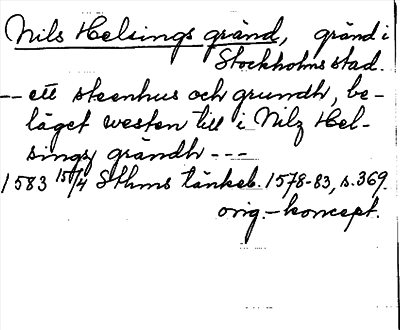 Nils Helsings gränd, gränd i
Stockholms stad.
-- ett steenhus och grundh, be-
läget westen till i Nilz Hel-
singz grändh ---
1583 15/4 Sthms tänkeb. 1578-83, s. 369.
orig.-koncept.